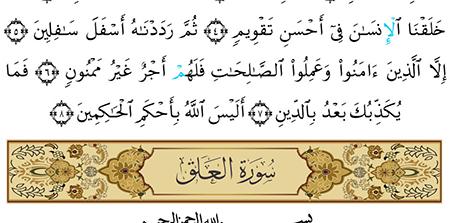 خَلَقْنَا ٱلْإِنسَٰنَ فِىٓ أَحْسَنِ تَقْوِيمٍ ﴿٤﴾ ثُمَّ رَدَدْنَٰهُ أَسْفَلَ سَٰفِلِينَ ﴿٥﴾
إِلَّا ٱلَّذِينَ ءَامَنُوا۟ وَعَمِلُوا۟ ٱلصَّٰلِحَٰتِ فَلَهُمْ أَجْرٌ غَيْرُ مَمْنُونٍ ﴿٦﴾ فَمَا
يُكَذِّبُكَ بَعْدُ بِٱلدِّينِ ﴿٧﴾ أَلَيْسَ ٱللَّهُ بِأَحْكَمِ ٱلْحَٰكِمِينَ ﴿٨﴾
سُورَةُ العَلَقِ